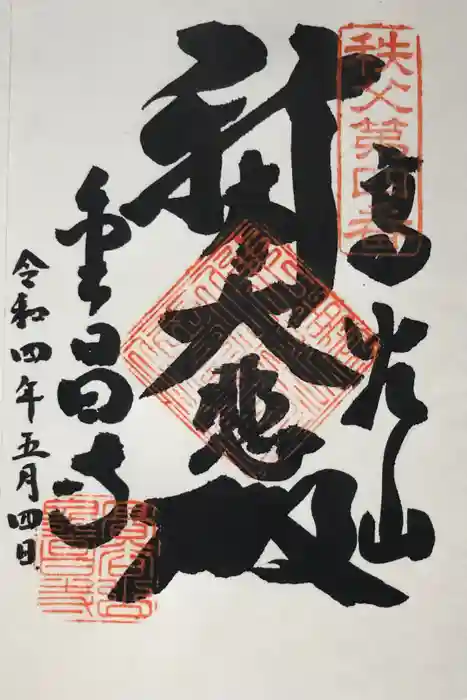 秩父第四番
高谷山
大悲
金昌寺
令和四年五月四日